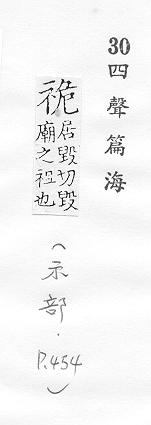 30四聲篇海
祪居毀切毀
廟之祖也
(示部·P.454)